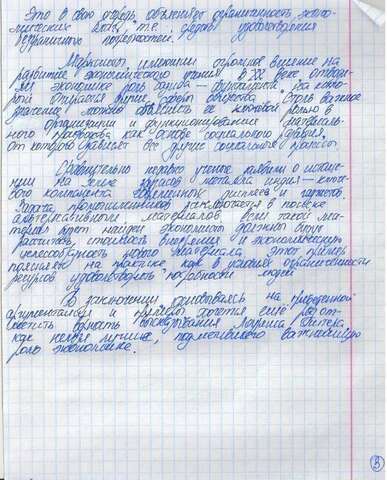 Это в свою очередь объясняет ограниченность эконо-
мических благ, т.е. задачу удовлетворения
потребностей.
Марксизм, имевший огромное влияние на
развитие экономического учения в XX веке отводи-
л экономике роль базиса — фундамента, на кото-
ром строятся другие сферы общества. Столь важное
значение можно объяснить её ключевой ролью в
организации и функционировании материаль-
ного производства как основе социального бытия,
от которого зависят все другие социальные процессы.
Сравнительно недавно учёные заявили о истоще-
нии на земле запасов металла индия — ключе-
вого компонента современных дисплеев и гаджетов.
Задача промышленников заключается в поиске
альтернативных материалов. Если такой ма-
териал будет найден экономист должны будут
рассчитать стоимость внедрения и экономическую
целесообразность нового материала. Этот пример
показывает на практике как в условиях ограниченности
ресурсов удовлетворить потребности людей
В заключении, основываясь на приведенной
аргументации и примерах хочется ещё раз от-
метить верность высказывания Лоуренса Питера,
как нельзя лучше, подметившего важнейшую
роль экономики.
3